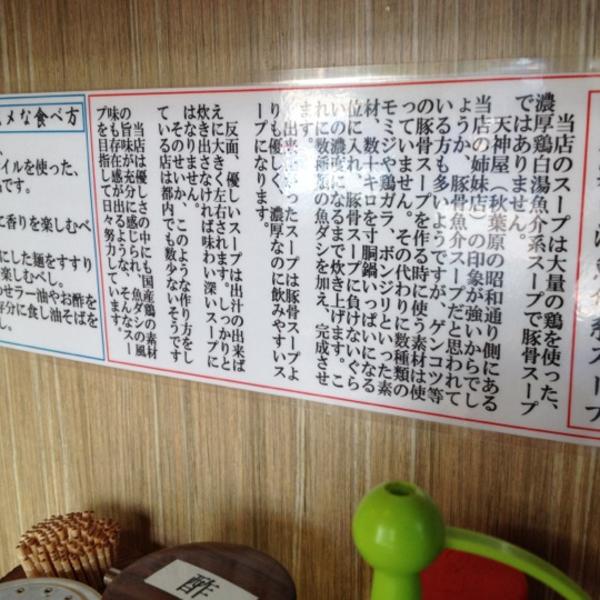 当店のスープは大量の鶏を使った、
濃厚鶏白湯魚介系スープで豚骨スープ
ではありません。
天神屋（秋葉原の昭和通り側にある
当店の姉妹店）の印象が強いからでし
ょうか、豚骨魚介スープだと思われて
いる方も多いようですが、ゲンコツ等
の豚骨スープを作る時に使う素材は使
っていません。その代わりに数種類の
モミジや鶏ガラ、ボンジリといった素
材、数十キロを寸胴鍋いっぱいになる
位に入れ、豚骨スープに負けないぐら
いの濃度になるまで炊き上げます。こ
れに数種類の魚ダシを加え、完成させ
ます。
出来あがったスープは豚骨スープよ
りも優しく、濃厚なのに飲みやすいス
ープになります。
反面、優しいスープは出汁の出来ば
えに大きく左右されます。しっかりと
炊き出さなければ味わい深いスープに
はなりません。
そのせいか、このような作り方をし
ている店は都内でも数少ないそうです
当店は優しさの中にも、国産鶏の素材
の旨味が充分に感じられ、魚ダシの風
味も存在感が出るような、そんなスー
プを目指して日々努力しています。
メな食べ方
イルを使った、
です。
に香りを楽しむべ
にした麺をすすり
楽しむべし。
わせラー油やお酢を
存分に食し油そばを
し。
酢